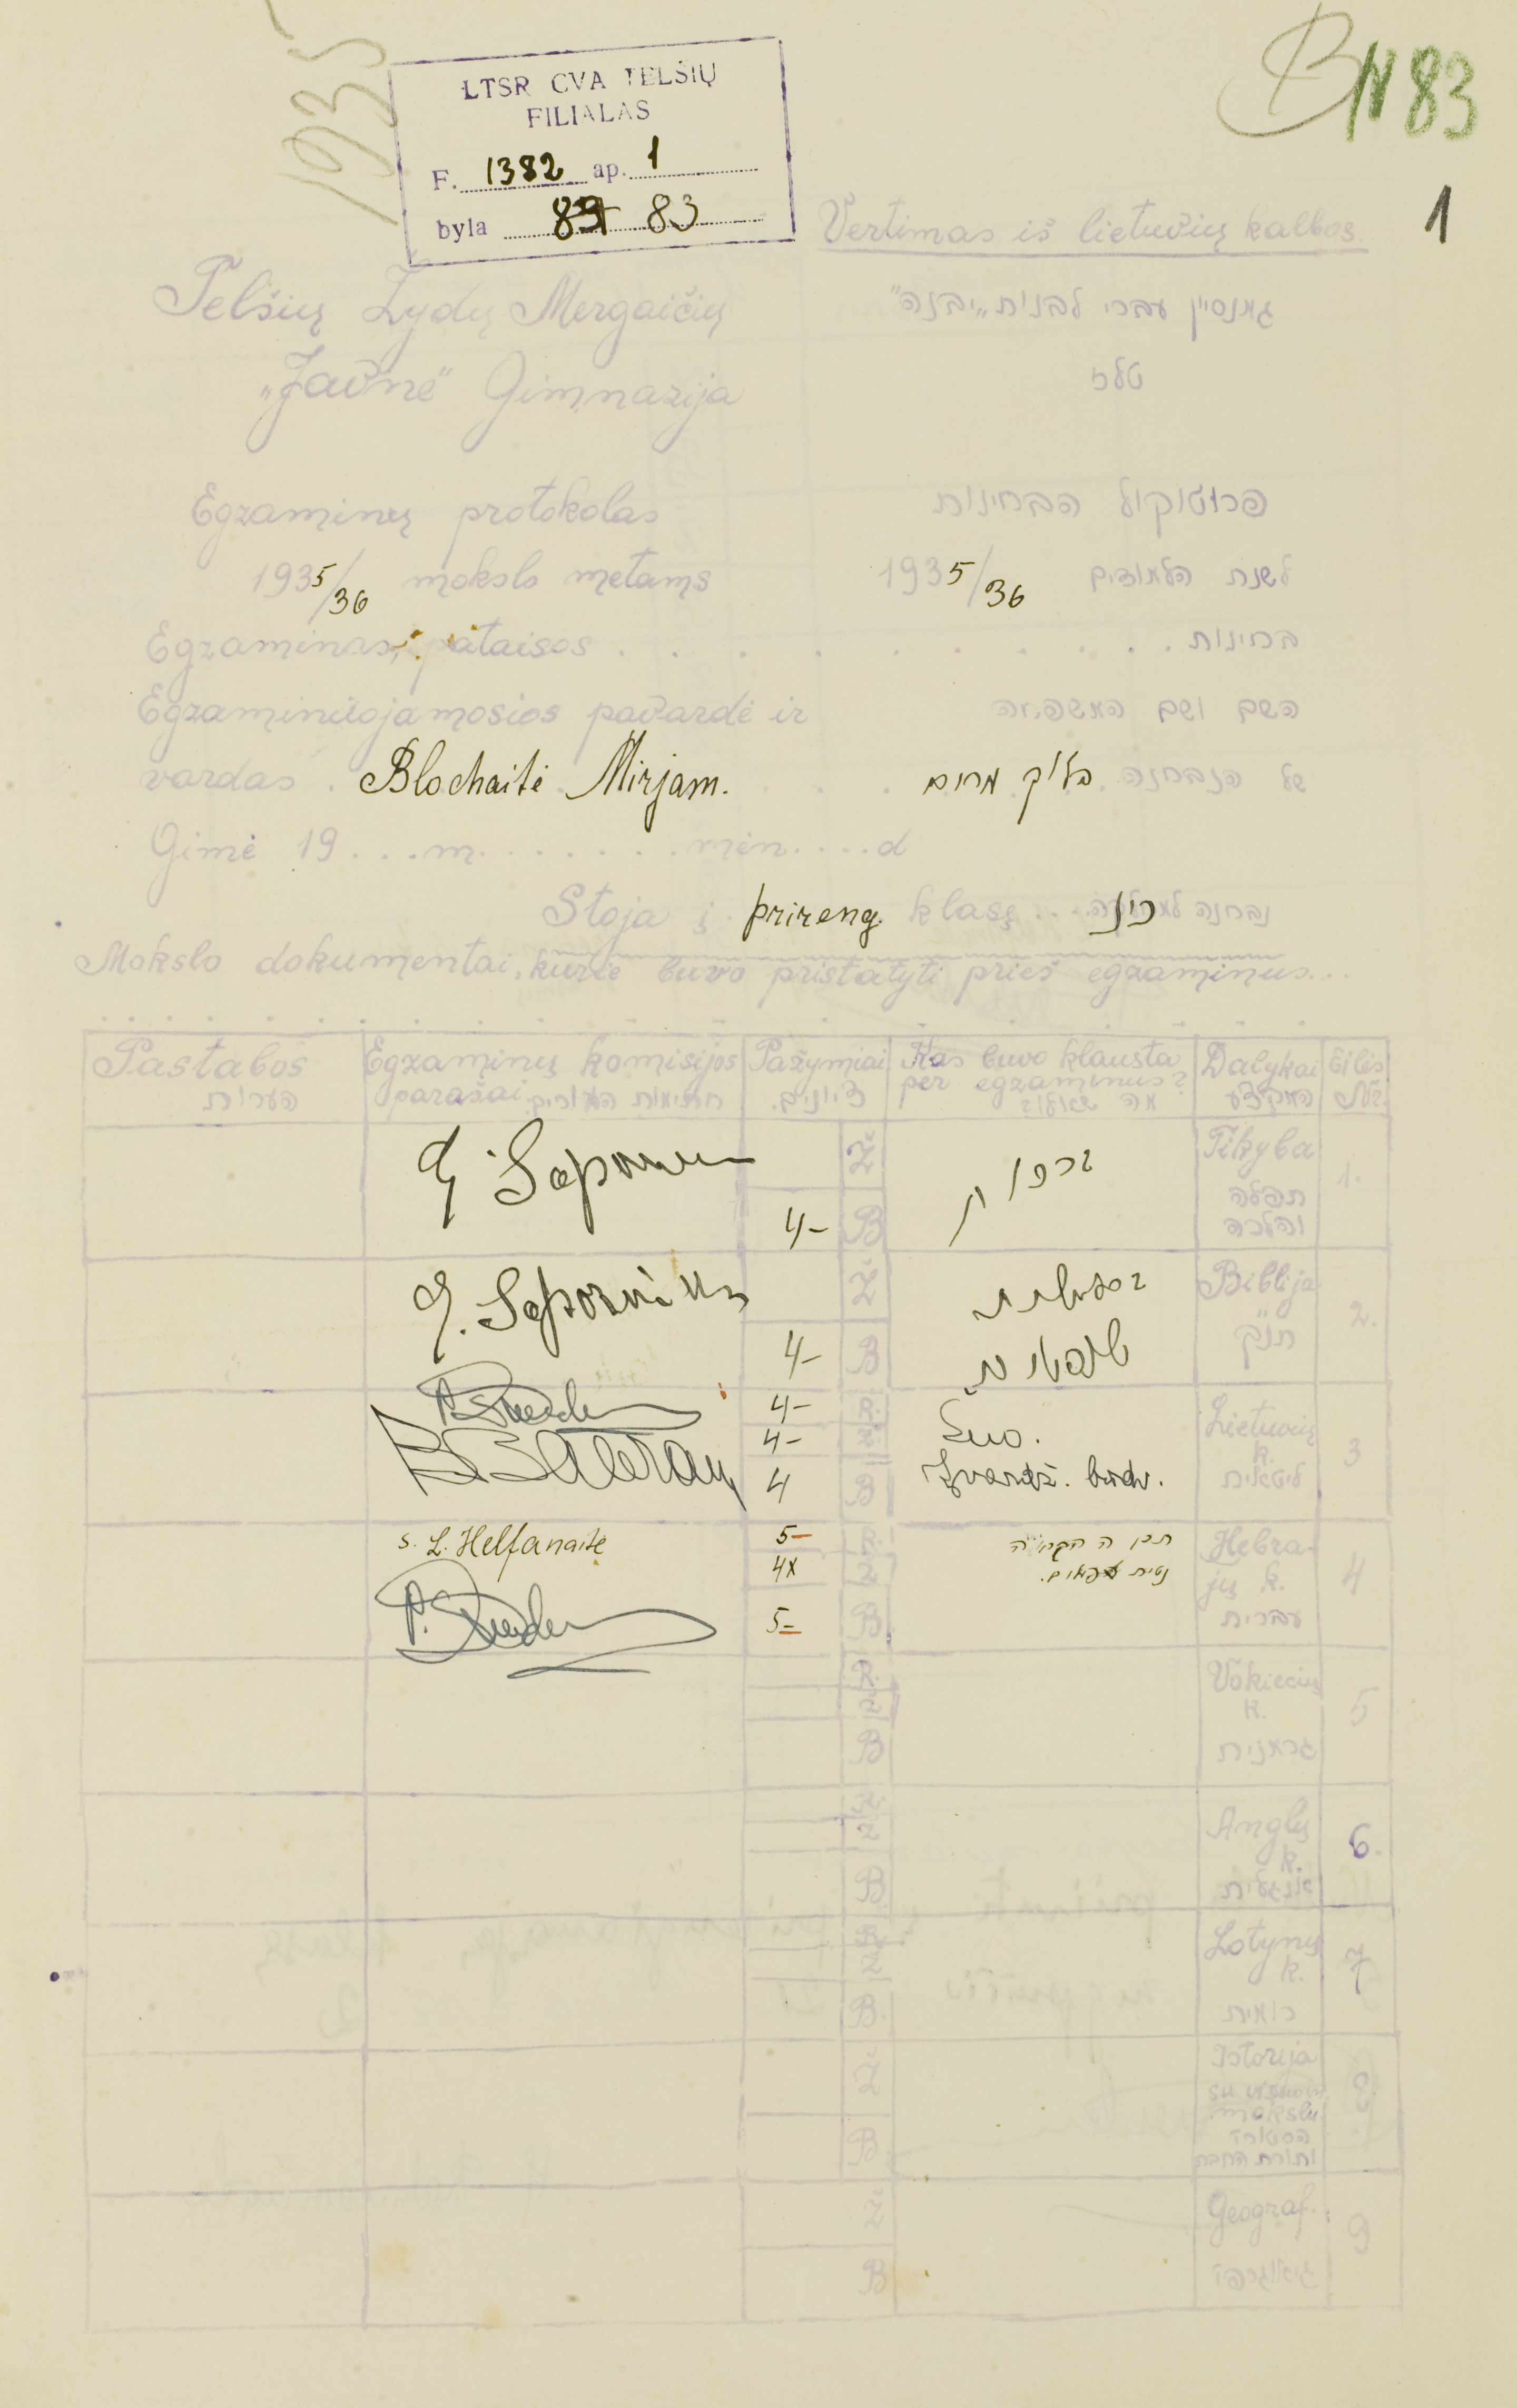 1935
B N 83
LTSR CVA TELŠIŲ
FILIALAS
F. 1382 ap. 1
byla 83
1
Vertimas iš lietuvių kalbos.
Telšių Žydų Mergaičių
„Javnė" Gimnazija
גמנסיון עברי לבנות „יבנה"
טלז
Egzaminų protokolas
פרוטוקול הבחינות
1935/36 mokslo metams
לשנת הלמודים 1935/36
Egzaminas, pataisos . . . . . . . . . . .
בחינות
Egzaminuojamosios pavardė ir
השם ושם המשפחה
vardas . Blochaitė Mirjam.
של הנבחנה בלוך מרים
Gimė 19 . . . m. . . . . . . . mėn. . . . . d
Stoja į prireng. klasę . . .
נבחנה
Mokslo dokumentai, kurie buvo pristatyti prieš egzaminus...
Pastabos
הערות
Egzaminų komisijos
parašai
חתימות המורים
Pažymiai
ציונים.
Kas buvo klausta
per egzaminus?
מה שאלו?
Dalykai
המקצע
Eilės
Nr.
Ž
B 4-
ברכות
Tikyba
תפלה
והלכה
1.
Ž
B 4-
שופטים
Biblija
תנ"ך
2.
R. 4-
Ž 4-
B 4
Lietuvių
k.
ליטאית
3
S. L. Helfanaitė
R. 5-
Ž 4x
B 5-
Hebra-
jų k.
עברית
4
R.
Ž
B
Vokiečių
k.
גרמנית
5
R
Ž
B
Anglų
k.
אנגלית
6.
R
Ž
B.
Lotynų
k.
רומית
7
Ž
B
Istorija
su visuom.
mokslu
8.
Ž
B
Geograf.
גיאוגרפי
9